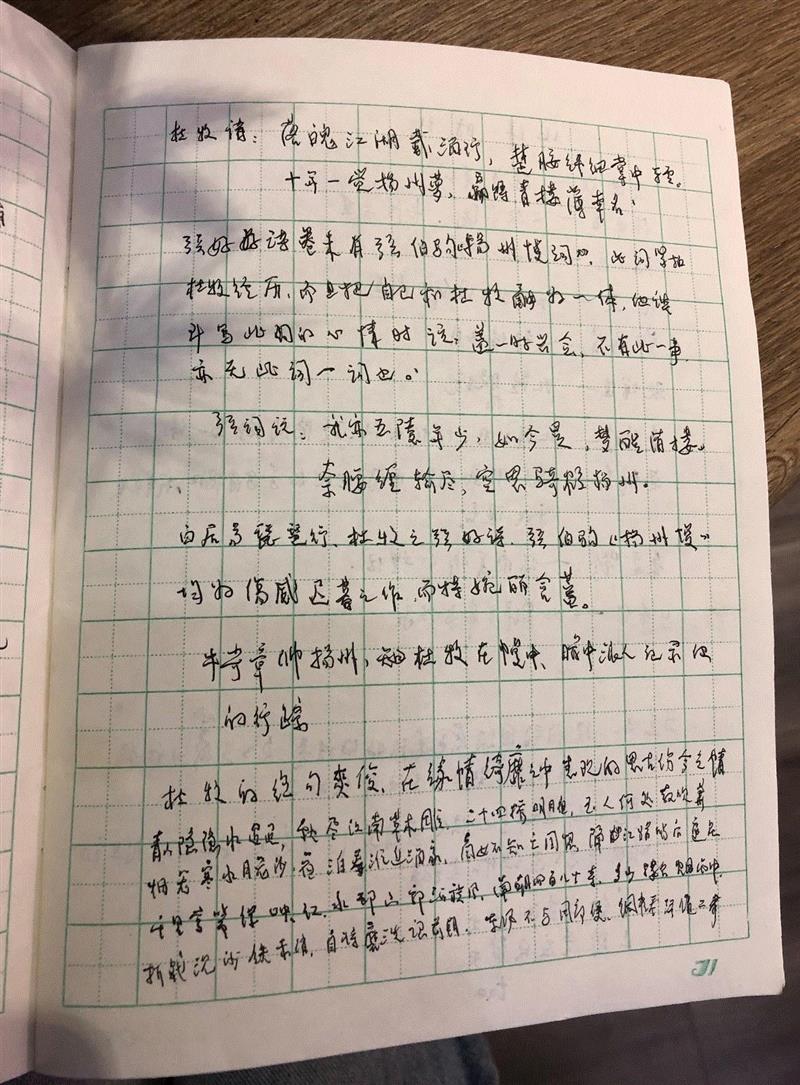 杜牧诗：落魄江湖载酒行，楚腰纤细掌中轻。
十年一觉扬州梦，赢得青楼薄幸名。
张好好诗卷末有张伯驹《扬州慢词》，此词写
杜牧经历，而且把自己和杜牧融为一体，他谈
到写此词的心情时说：盖一时兴会，不有此一事
亦无此词一词也。
张词说：我亦五陵年少，如今是，梦醒青楼。
奈腰缠输尽，空思骑鹤扬州。
白居易琵琶行、杜牧之张好诗、张伯驹《扬州慢》
均为伤感迟暮之作，而特婉丽含蓄。
牛奇章帅扬州，知杜牧在幕中、暗中派人记录他
的行踪
杜牧的绝句爽俊，在缘情绮靡之中 思古伤今之情
青山隐隐水迢迢，秋尽江南草木凋，二十四桥明月夜，玉人何处教吹箫
烟笼寒水月笼沙，夜泊秦淮近酒家，商女不知亡国恨，隔江 后庭花
千里莺啼绿映红，水村山郭酒旗风，南朝四百八十寺，多少楼台烟雨中，
折戟沉沙铁未销，自将磨洗认前朝，东风不与周郎便，铜雀春深锁二乔
31